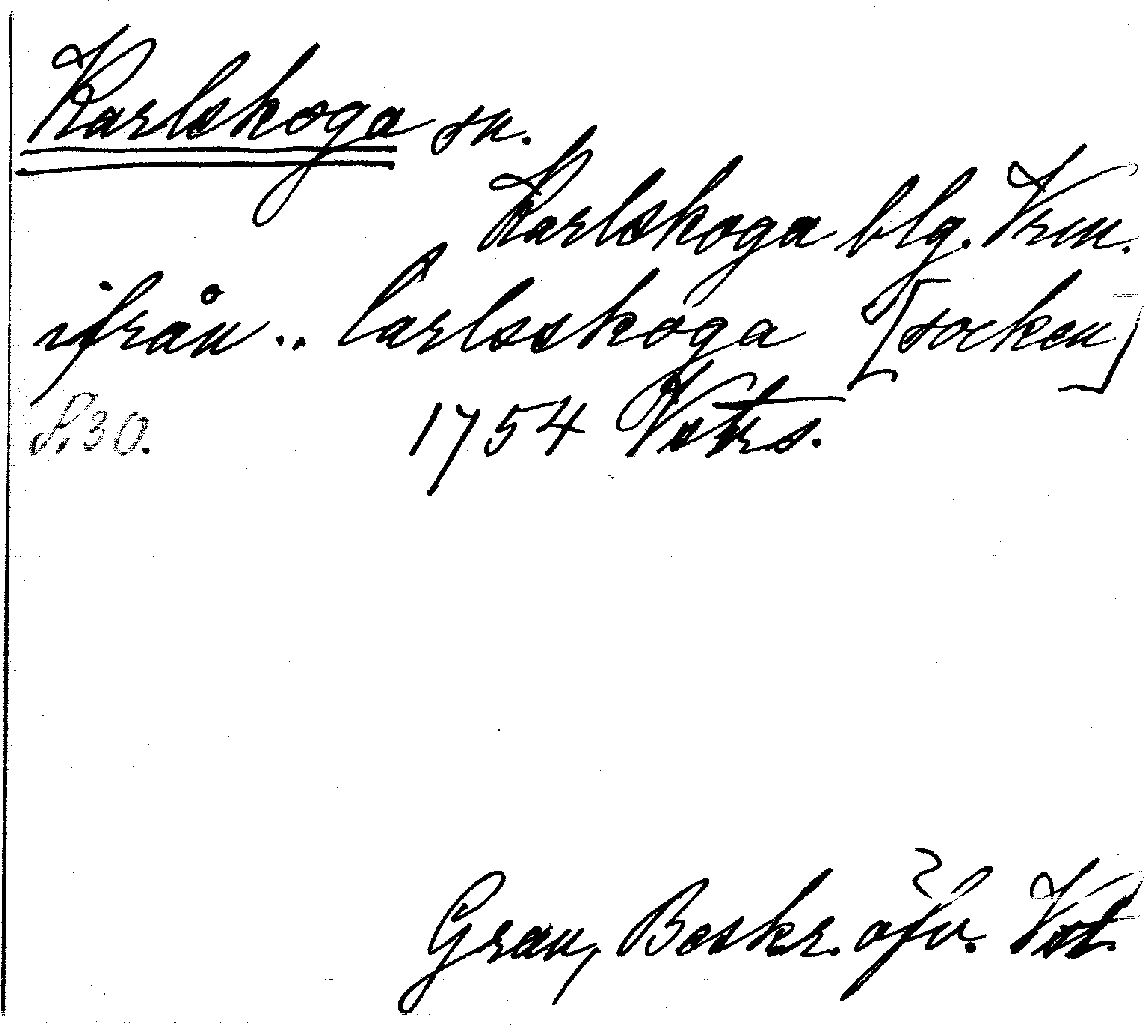 Karlskoga sn.
Karlskoga blg. Vrm.
ifrån .. Carlsskoga [socken]
S. 30. 1754 Vstrs.
Grau, Beskr. öfv. Vst.